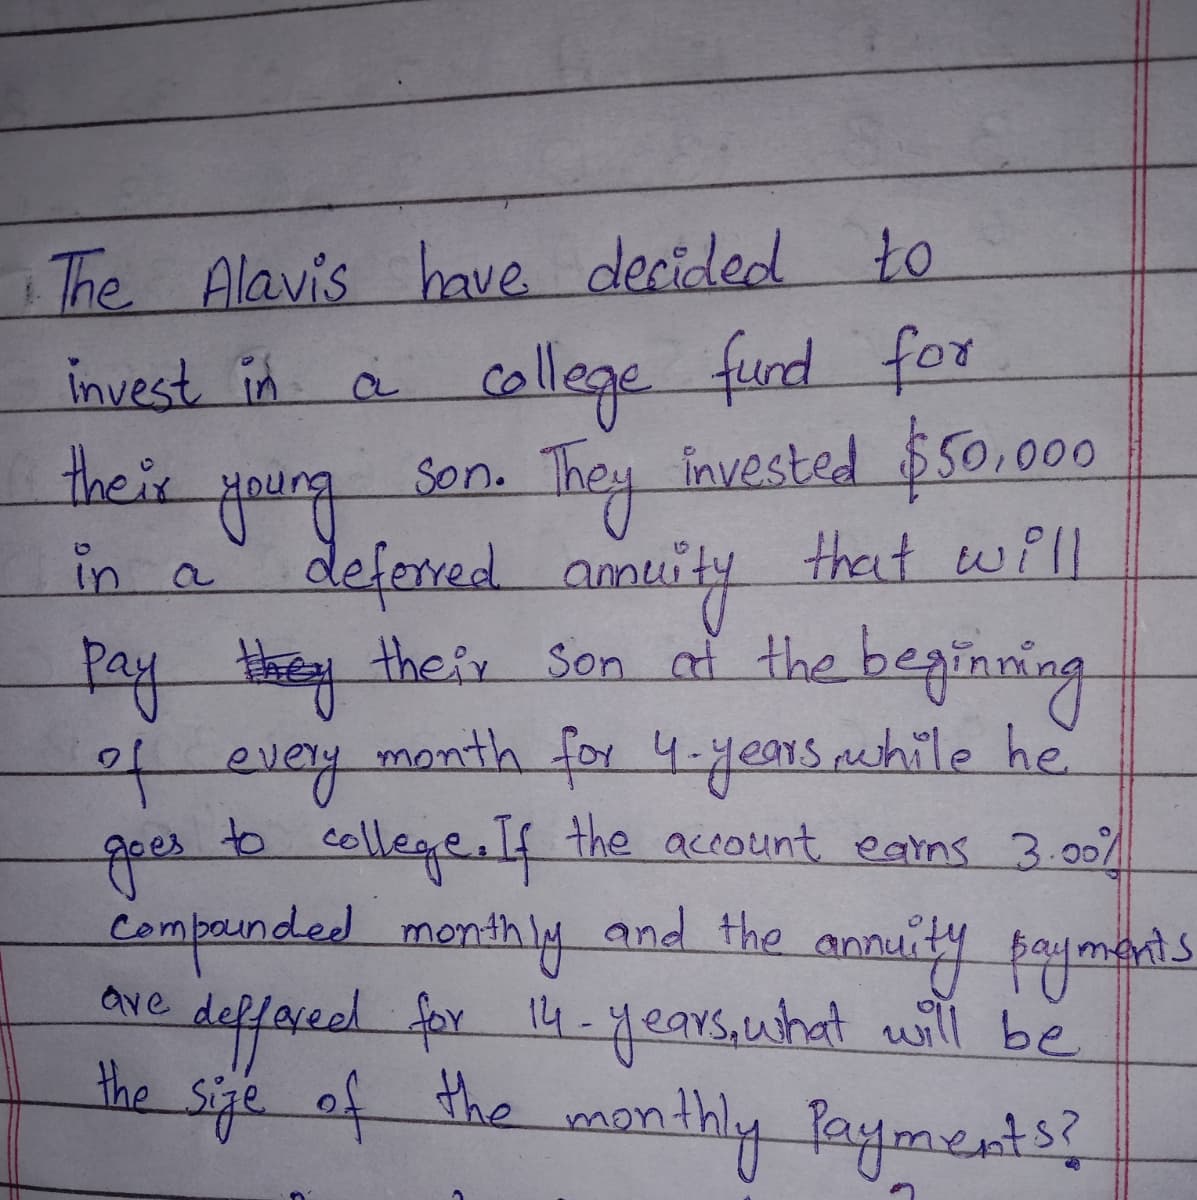 The Alavis have decided to
invest in a college fund for
their young son. They invested $50,000
in a deferred annuity that will
Pay they their son at the beginning
of every month for 4-years, while he
goes to college. If the account earns 3.00%
compounded monthly and the annuity payments
are deffered for 14-years, what will be
the size of the monthly Payments?